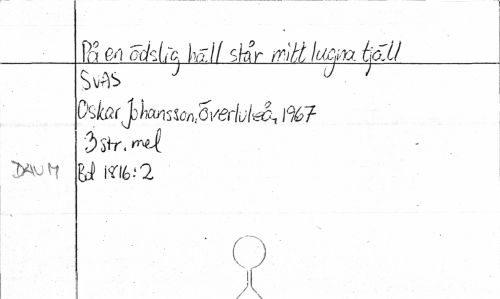 På en ödslig häll står mitt lugna tjäll
SVAS
Oskar Johansson, Överluleå, 1967
3 str. mel
DAUM Bd 1816:2